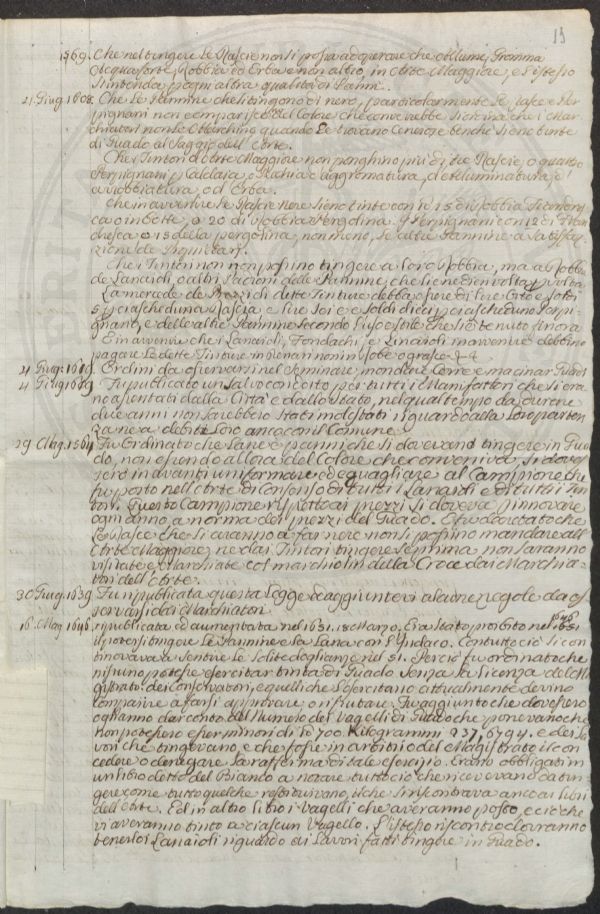 13
1569. Che nel tingere le Rascie non si possa adoperare che Allume, Gromma
Acqua forte, Robbia ed Erba e non altro, in Arte Maggiore, e l'istesso
s'intenda p ogni altra qualità di Panni.
21. Giug. 1608. Che Le Stamine che si tingono di nero, particolarmente le fasce e Per
pignani non compariscendo del Colore che converrebbe si ordina che i Mar
chiatori non le Marchino quando Le trovano Cenerose benche sieno tinte
di Guado al Saggio dell'Arte.
Che i Tintori d'Arte Maggiore non ponghino più di tre Rascie, o quattro
Perpignani p Caldaia, o Stachia e aggromatura, d'etalluminatura, e
arrobbiatura, od Erba.
Che in avvenire le Rascie nere sieno tinte con lb 15 di Robbia
ca o in botte, o 20 di Robbia Pergolina. I Perpignani con 12 di
chesca o 18 della pergolina, non meno, le altre Stammine a Satisfa
zione de
Che i Tintori non possino tingere a loro Robbia, ma a Robbia
de Lanaioli, o altri Padroni delle Stamine, che sieno di
La mercede de Prezzi di dette Tinture debba essere di Lire otto e soldi
p ciascheduna Rascia, e Lire Sei e Soldi dieci p ciascheduno Perpi
gnano, e delle altre Stamine Secondo l'uso e stile che si è tenuto finora
E in avvenire che i Lanaioli, Fondachi, e Linaioli in avvenire debbino
pagare Le dette Tinture in denari non in robe o grasce &.&
21. Giug. 1610. Ordini da osservarsi nel Seminare mondare Corre e macinar Guadi
4 Giug. 1619 Fu publicato un Salvocondotto per tutti i Manifattori che si era
no assentati dalla Città e dallo Stato, nel qual tempo da durare
due anni non sarebbero Stati molestati riguardo alla loro parten
za ne a debiti loro anco con il Comune.
29 Mag. 1564 Fu Ordinato che Lane e panni che si dovevano tingere in Gua
do, non essendo allora del Colore che conveniva, si doves
sero in avanti uniformare ed eguagliare al Campione che
fu posto nell'Arte di Consenso di tutti i Lanaioli e di tutti i Tin
tori. Questo Campione rispetto ai prezzi si doveva rinnovare
ogni anno, a norma dei prezzi del Guado. E fu dichiarato che
Le Rascie che si avranno a far nere non si possino mandare all'
Arte Maggiore, ne dai Tintori tingere se prima non saranno
visitate e Marchiate col marchiolin della Croce dai Marchia
tori dell'Arte.
30 Giug. 1639. Fu ripublicata questa Legge ed aggiuntevi alcune regole da os
servarsi dai Marchiatori
16. Mag. 1646. ripublicata ed aumentata nel 1651. 18 Marzo. Era Stato proibito nel 1646
il potersi tingere Le Stamine e la Lana con l'Indaco. Contuttociò si con
tinovava a sentire le solite doglianze nel 51. Perciò fu ordinato che
nessuno potesse esercitar tinta di Guado Senza la licenza del Ma
gistrato dei Conservatori, e quelli che l'esercitano attualmente devino
comparire a farsi approvare, o rifiutare. Fu aggiunto che dovessero
ogni anno dar conto del Numero dei Vagelli di Guado che ponevano che
non potessero esser minori di lb 700. Kilogrammi 237,6794. e dei La
vori che tingevano, e che fosse in arbitrio del Magistrato il con
cedere o denegare la rafferma di tale esercizio. Erano obbligati in
un libro detto del Bianco a notare tutto ciò che ricevevano da tin
gere, come tutto quelche restituivano, il che si riscontrava anco ai libri
dell'Arte. Ed in altro libro i Vagelli che averanno posto, e ciò che
vi averanno tinto a ciascun Vagello. L'istesso riscontro dovranno
tenere i Lanaioli riguardo ai Lavori fatti tingere in Guado.